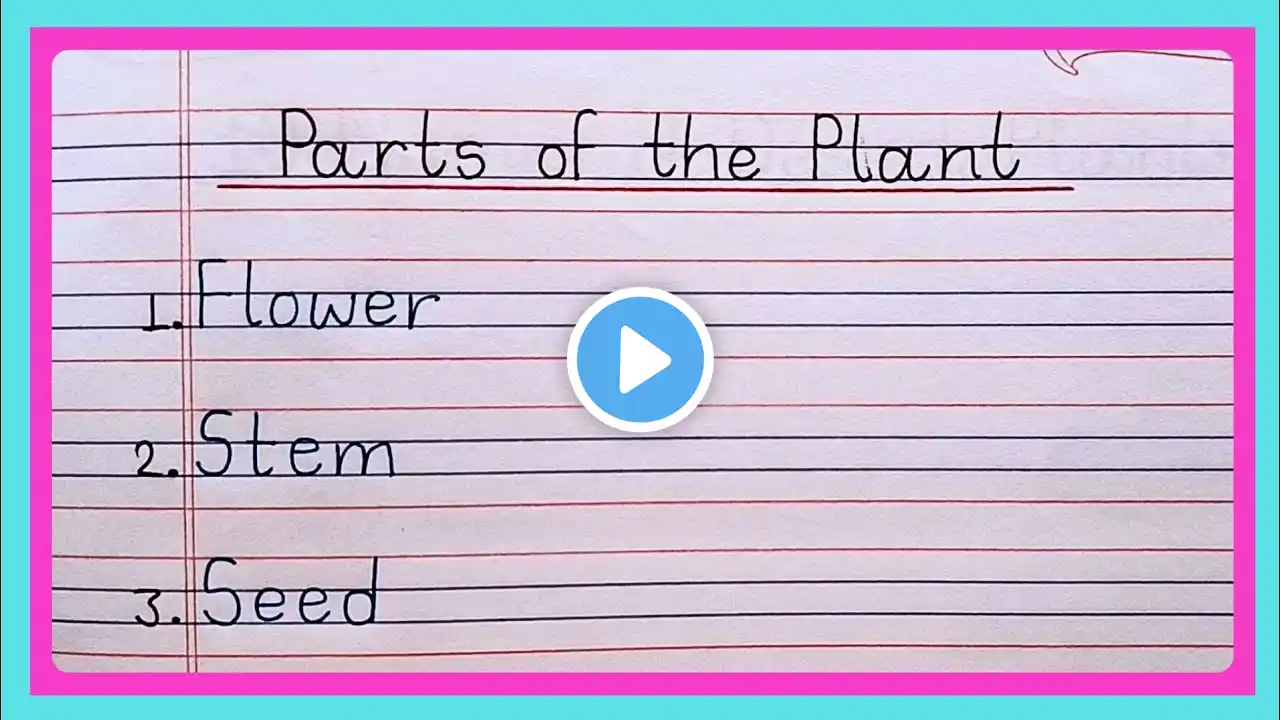 Parts of the Plant
1. Flower
2. Stem
3. Seed